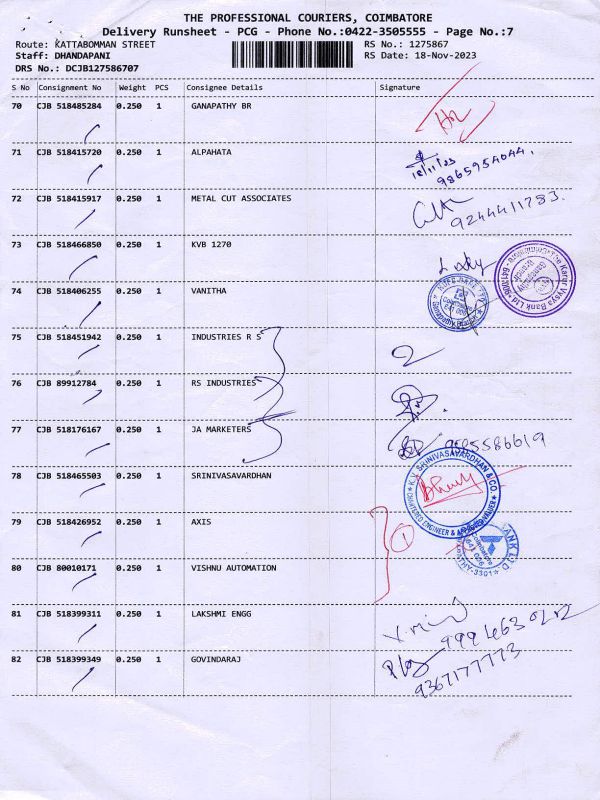 THE PROFESSIONAL COURIERS, COIMBATORE
Delivery Runsheet - PCG - Phone No.:0422-3505555 - Page No.:7
Route: KATTABOMMAN STREET RS No.: 1275867
Staff: DHANDAPANI RS Date: 18-Nov-2023
DRS No.: DCJB127586707
S No Consignment No Weight PCS Consignee Details Signature
70 CJB 518485284 0.250 1 GANAPATHY BR
71 CJB 518415720 0.250 1 ALPAHATA
18/11/23
9865954044.
72 CJB 518415917 0.250 1 METAL CUT ASSOCIATES
9244411783.
73 CJB 518466850 0.250 1 KVB 1270
74 CJB 518406255 0.250 1 VANITHA
75 CJB 518451942 0.250 1 INDUSTRIES R S
2
76 CJB 89912784 0.250 1 RS INDUSTRIES
77 CJB 518176167 0.250 1 JA MARKETERS
78 CJB 518465503 0.250 1 SRINIVASAVARDHAN
K.V. SRINIVASAVARDHAN & CO.
CHARTERED ENGINEER & APPROVED VALUER
79 CJB 518426952 0.250 1 AXIS
1
80 CJB 80010171 0.250 1 VISHNU AUTOMATION
81 CJB 518399311 0.250 1 LAKSHMI ENGG
82 CJB 518399349 0.250 1 GOVINDARAJ
9367177773